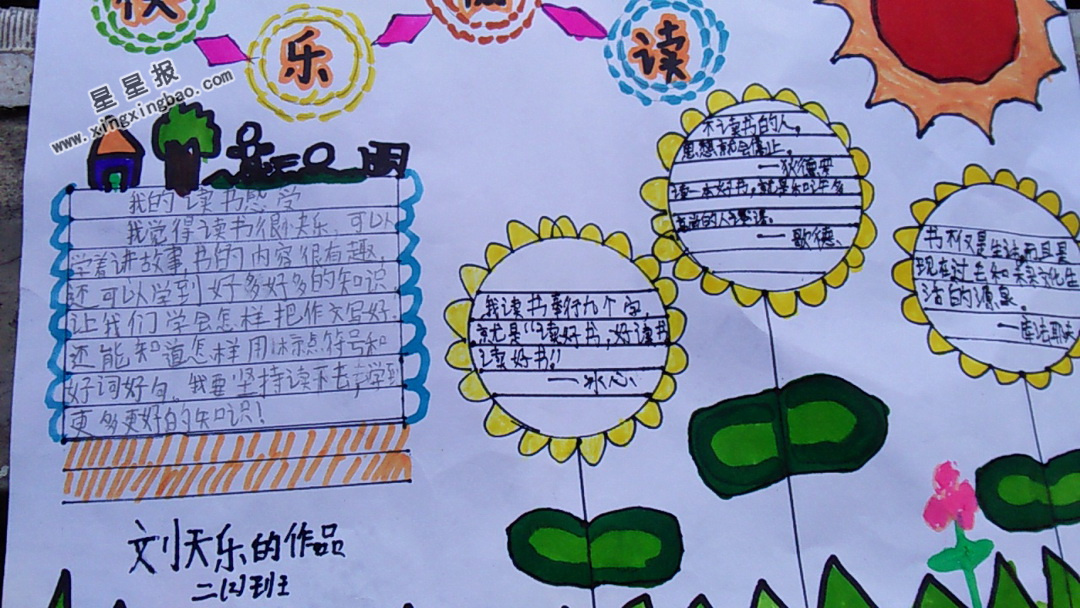 快乐阅读
星星报
www.xingxingbao.com
我的读书感学
我觉得读书很快乐,可以
学着讲故事,书的内容很有趣,
还可以学到好多好多的知识
让我们学会怎样把作文写好,
还能知道怎样用标点符号和
好词好句。我要坚持读下去,学到
更多更好的知识!
刘天乐的作品
二(2)班
我读书奉行九个字,
就是“读好书,好读书
读好书!!
——冰心
不读书的人,
思想就会停止。
——狄德罗
读一本好书,就是和许多
高尚的人
——歌德
书不仅是生活,而且是
现在过去和未来文化生
活的源泉。
——库法耶夫